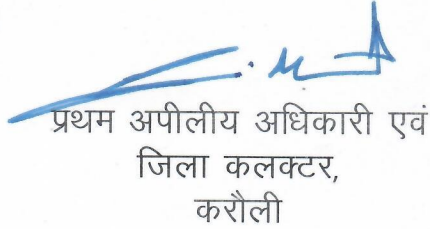 प्रथम अपीलीय अधिकारी एवं
जिला कलक्टर,
करौली